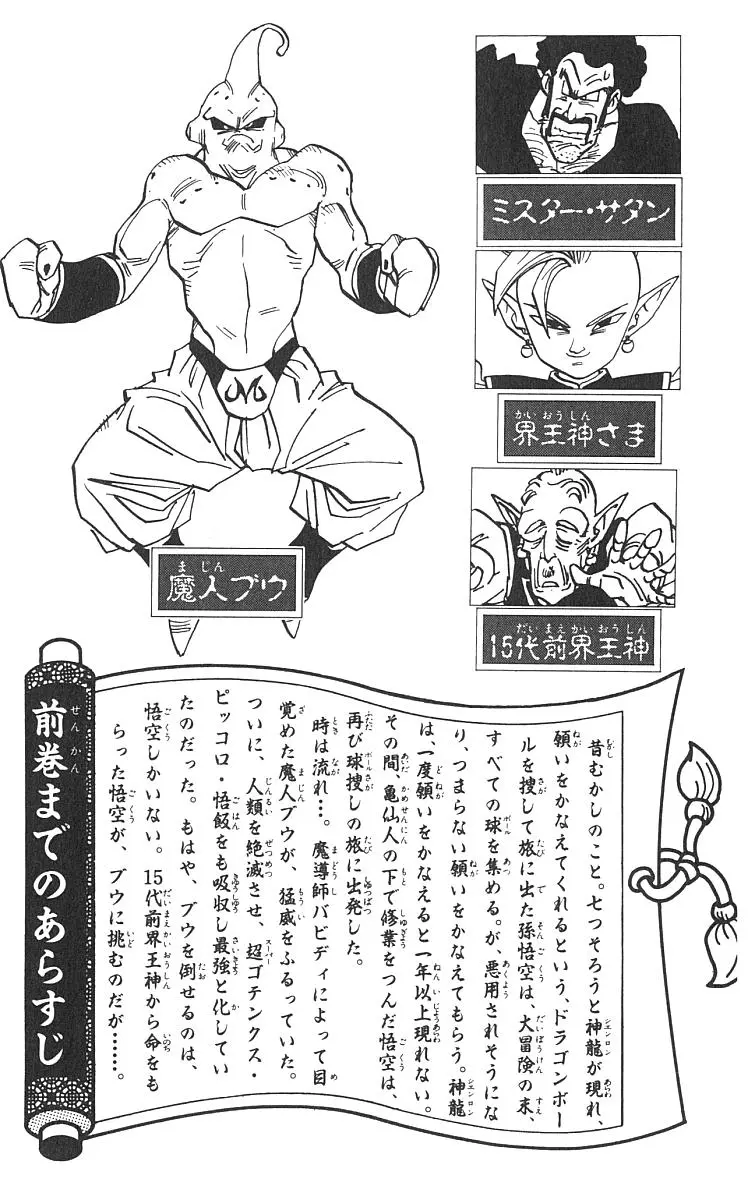 ミスター・サタン
界王神さま
15代前界王神
魔人ブウ
前巻までのあらすじ
昔むかしのこと。七つそろうと神龍が現れ、
願いをかなえてくれるという、ドラゴンボー
ルを捜して旅に出た孫悟空は、大冒険の末、
すべての球を集める。が、悪用されそうにな
り、つまらない願いをかなえてもらう。神龍
は、一度願いをかなえると一年以上現れない。
その間、亀仙人の下で修業をつんだ悟空は、
再び球捜しの旅に出発した。
時は流れ…。魔導師バビディによって目
覚めた魔人ブウが、猛威をふるっていた。
ついに、人類を絶滅させ、超ゴテンクス・
ピッコロ・悟飯をも吸収し最強と化してい
たのだった。もはや、ブウを倒せるのは、
悟空しかいない。15代前界王神から命をも
らった悟空が、ブウに挑むのだが……。